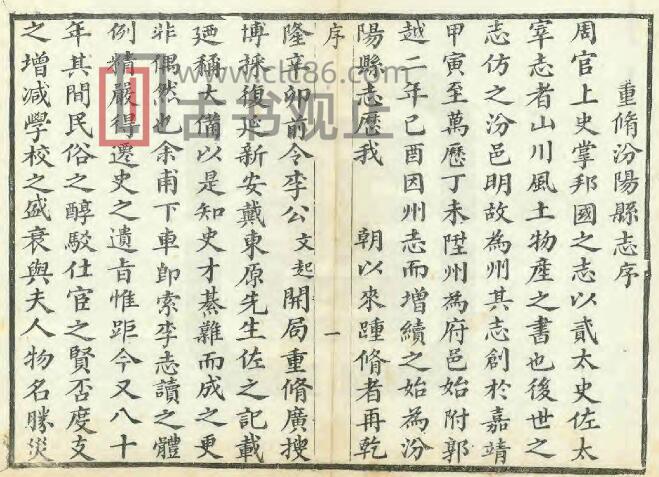 重脩汾陽縣志序
周官上史掌邦國之志以貳太史佐太
宰志者山川風土物產之書也後世之
志仿之汾邑明故為州其志創於嘉靖
甲寅至萬歷丁未陞州為府邑始附郭
越二年己酉因州志而增續之始為汾
陽縣志歷我 朝以來踵脩者再乾
序
一
隆辛卯前令李公文起開局重脩廣搜
博採復延新安戴東原先生佐之記載
廼稱大備以是知史才綦難而成之更
非偶然也余甫下車卽索李志讀之體
例精嚴得遷史之遺旨惟距今又八十
年其間民俗之醇駁仕宦之賢否度支
之增減學校之盛衰與夫人物名勝災
www.ct86.com
古书观止